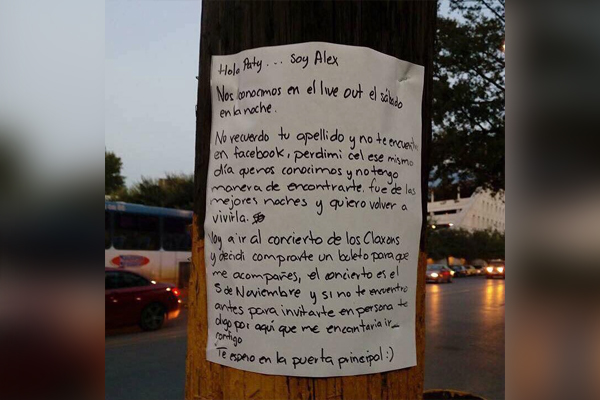 Hola Paty... Soy Alex
Nos conocimos en el live out el sábado
en la noche.
No recuerdo tu apellido y no te encuentro
en facebook, perdi mi cel ese mismo
día que nos conocimos y no tengo
manera de encontrarte. fue de las
mejores noches y quiero volver a
vivirla.
Voy a ir al concierto de los Claxons
y decidi comprarte un boleto para que
me acompañes, el concierto es el
5 de Noviembre y si no te encuentro
antes para invitarte en persona te
digo por aquí que me encantaria ir
contigo
Te espero en la puerta principal :)